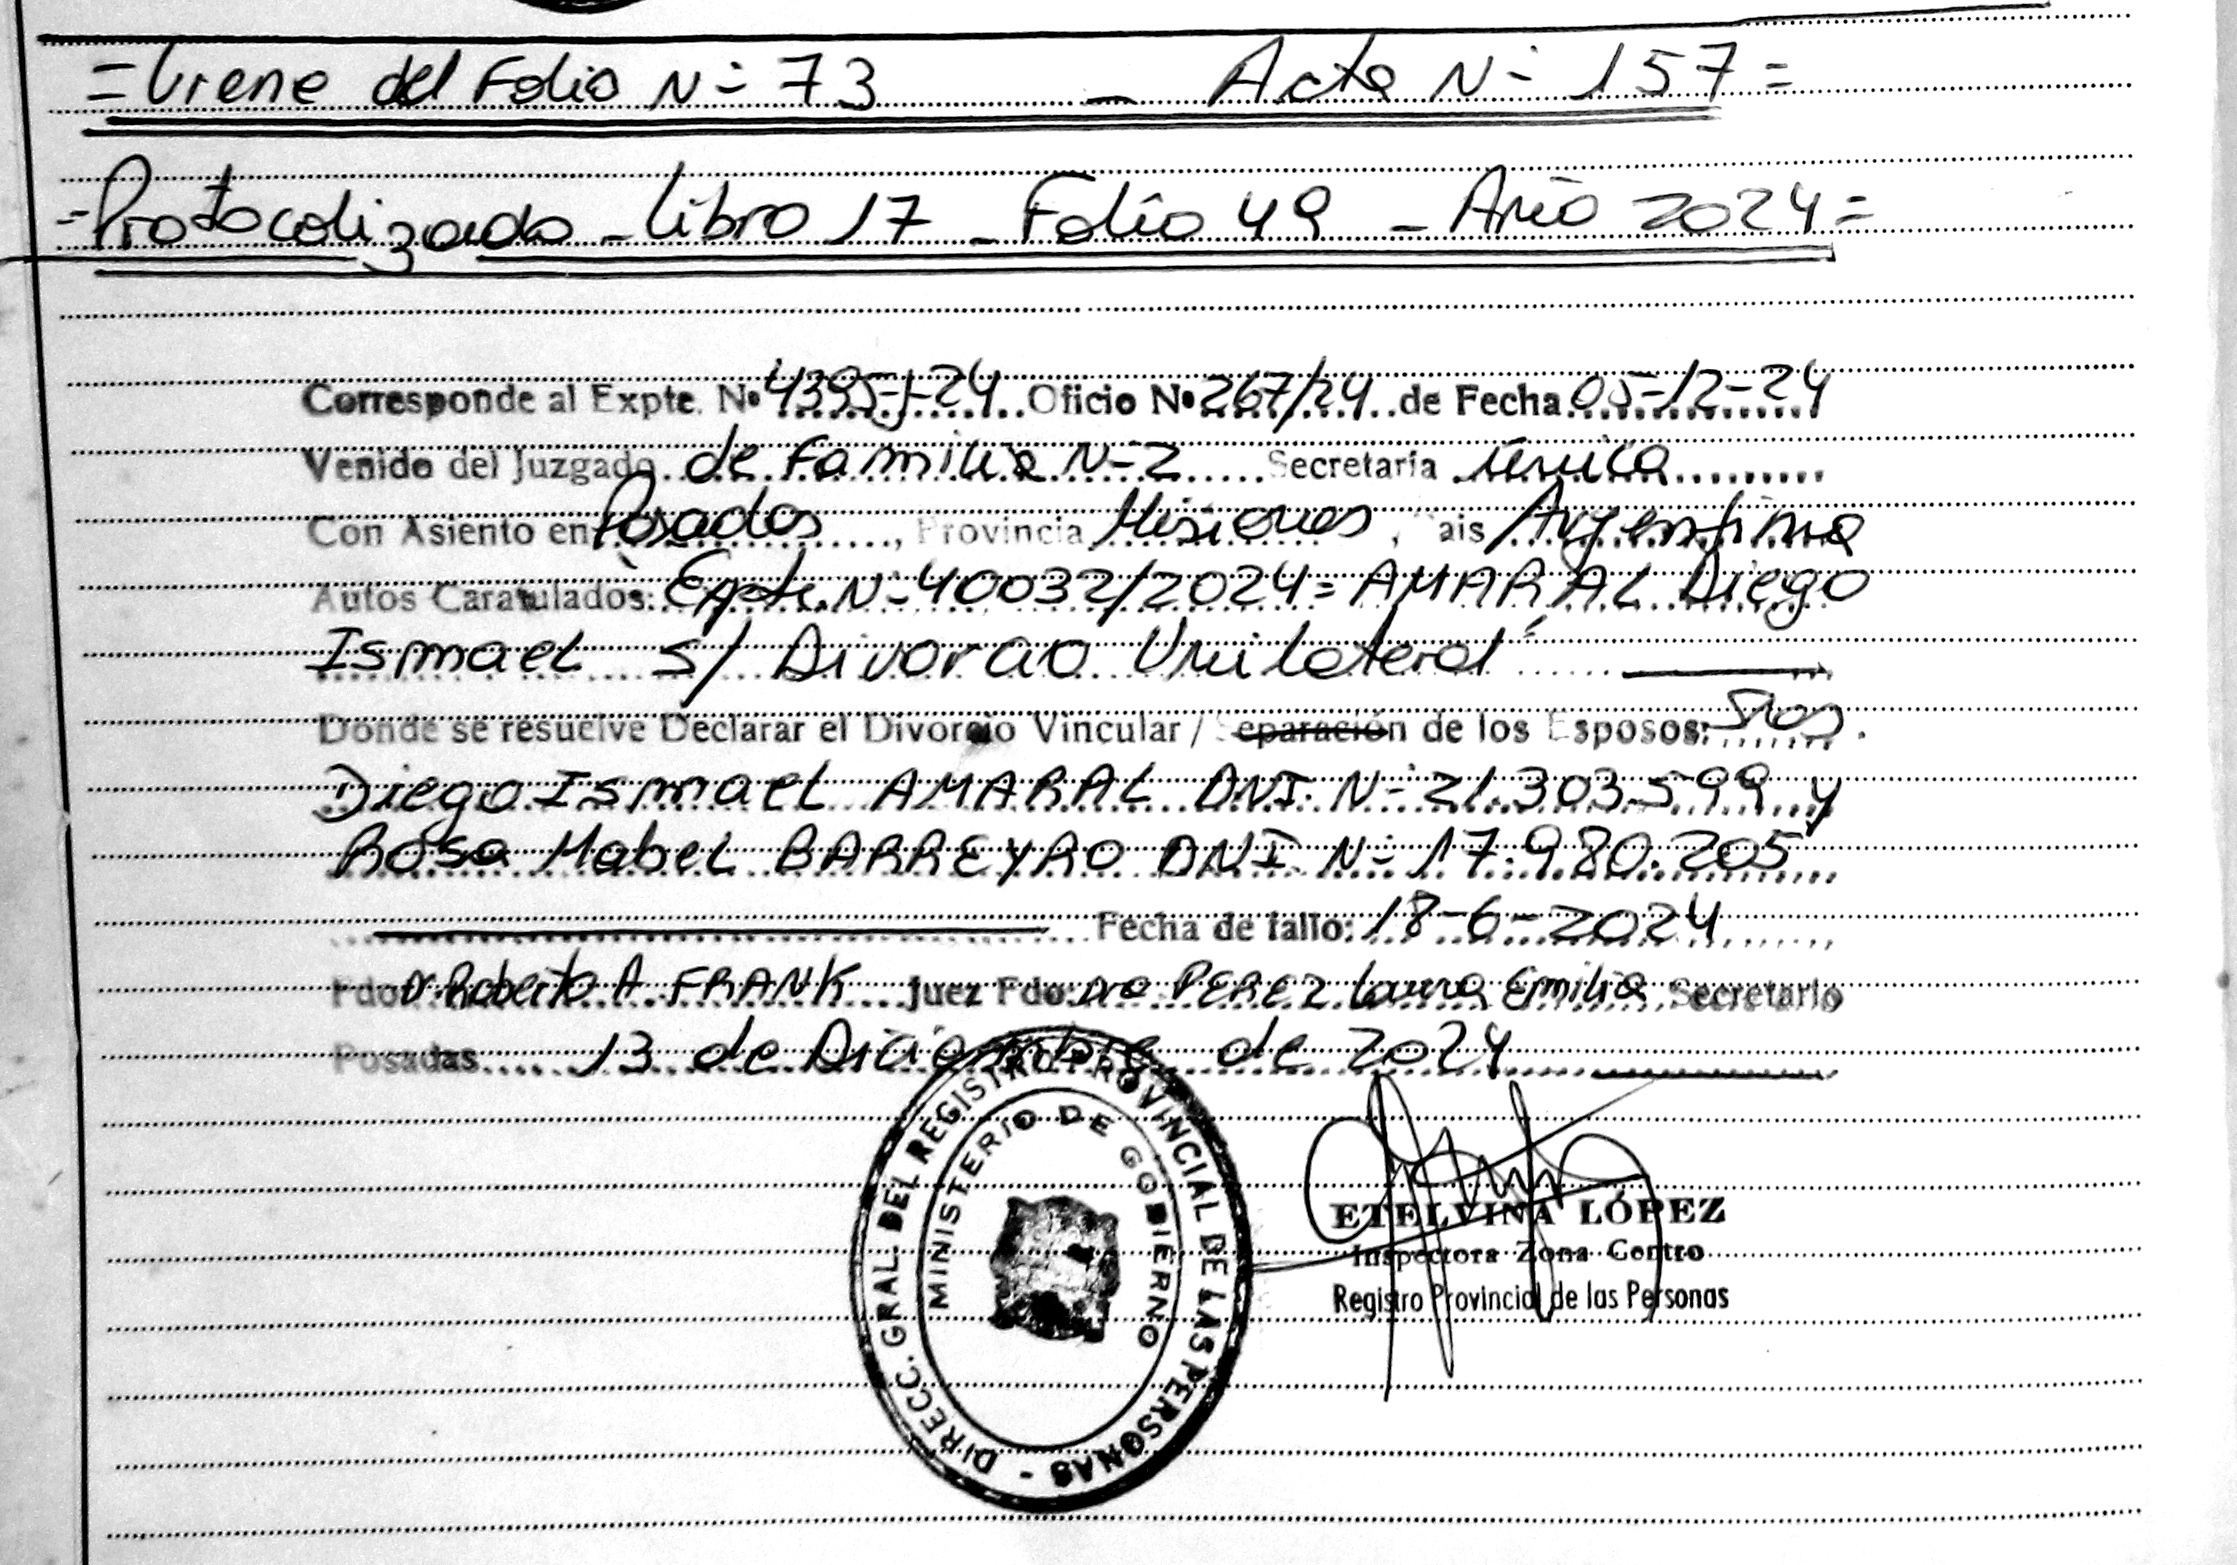 = Viene del Folio Nº 73 - Acta Nº 157 =
= Protocolizado - Libro 17 - Folio 49 - Año 2024 =
Corresponde al Expte. Nº 4395-J-24 Oficio Nº 267/24 de Fecha 05-12-24
Venido del Juzgado de Familia Nº 2 Secretaría única
Con Asiento en Posadas, Provincia Misiones, Pais Argentina
Autos Caratulados: Expte. Nº 40032/2024 = AMARAL Diego
Ismael s/ Divorcio Unilateral
Donde se resuelve Declarar el Divorcio Vincular / Separación de los Esposos: Sres
Diego Ismael AMARAL DNI Nº 21.303.599 y
Rosa Mabel BARREYRO DNI Nº 17.980.205
Fecha de fallo: 18-6-2024
Fdo Dr. Roberto A FRANK Juez Fdo: Dra PEREZ Laura Emilia Secretario
Posadas 13 de Diciembre de 2024
DIRECC. GRAL. DEL REGISTRO PROVINCIAL DE LAS PERSONAS -
MINISTERIO DE GOBIERNO
ETELVINA LÓPEZ
Inspectora Zona Centro
Registro Provincial de las Personas